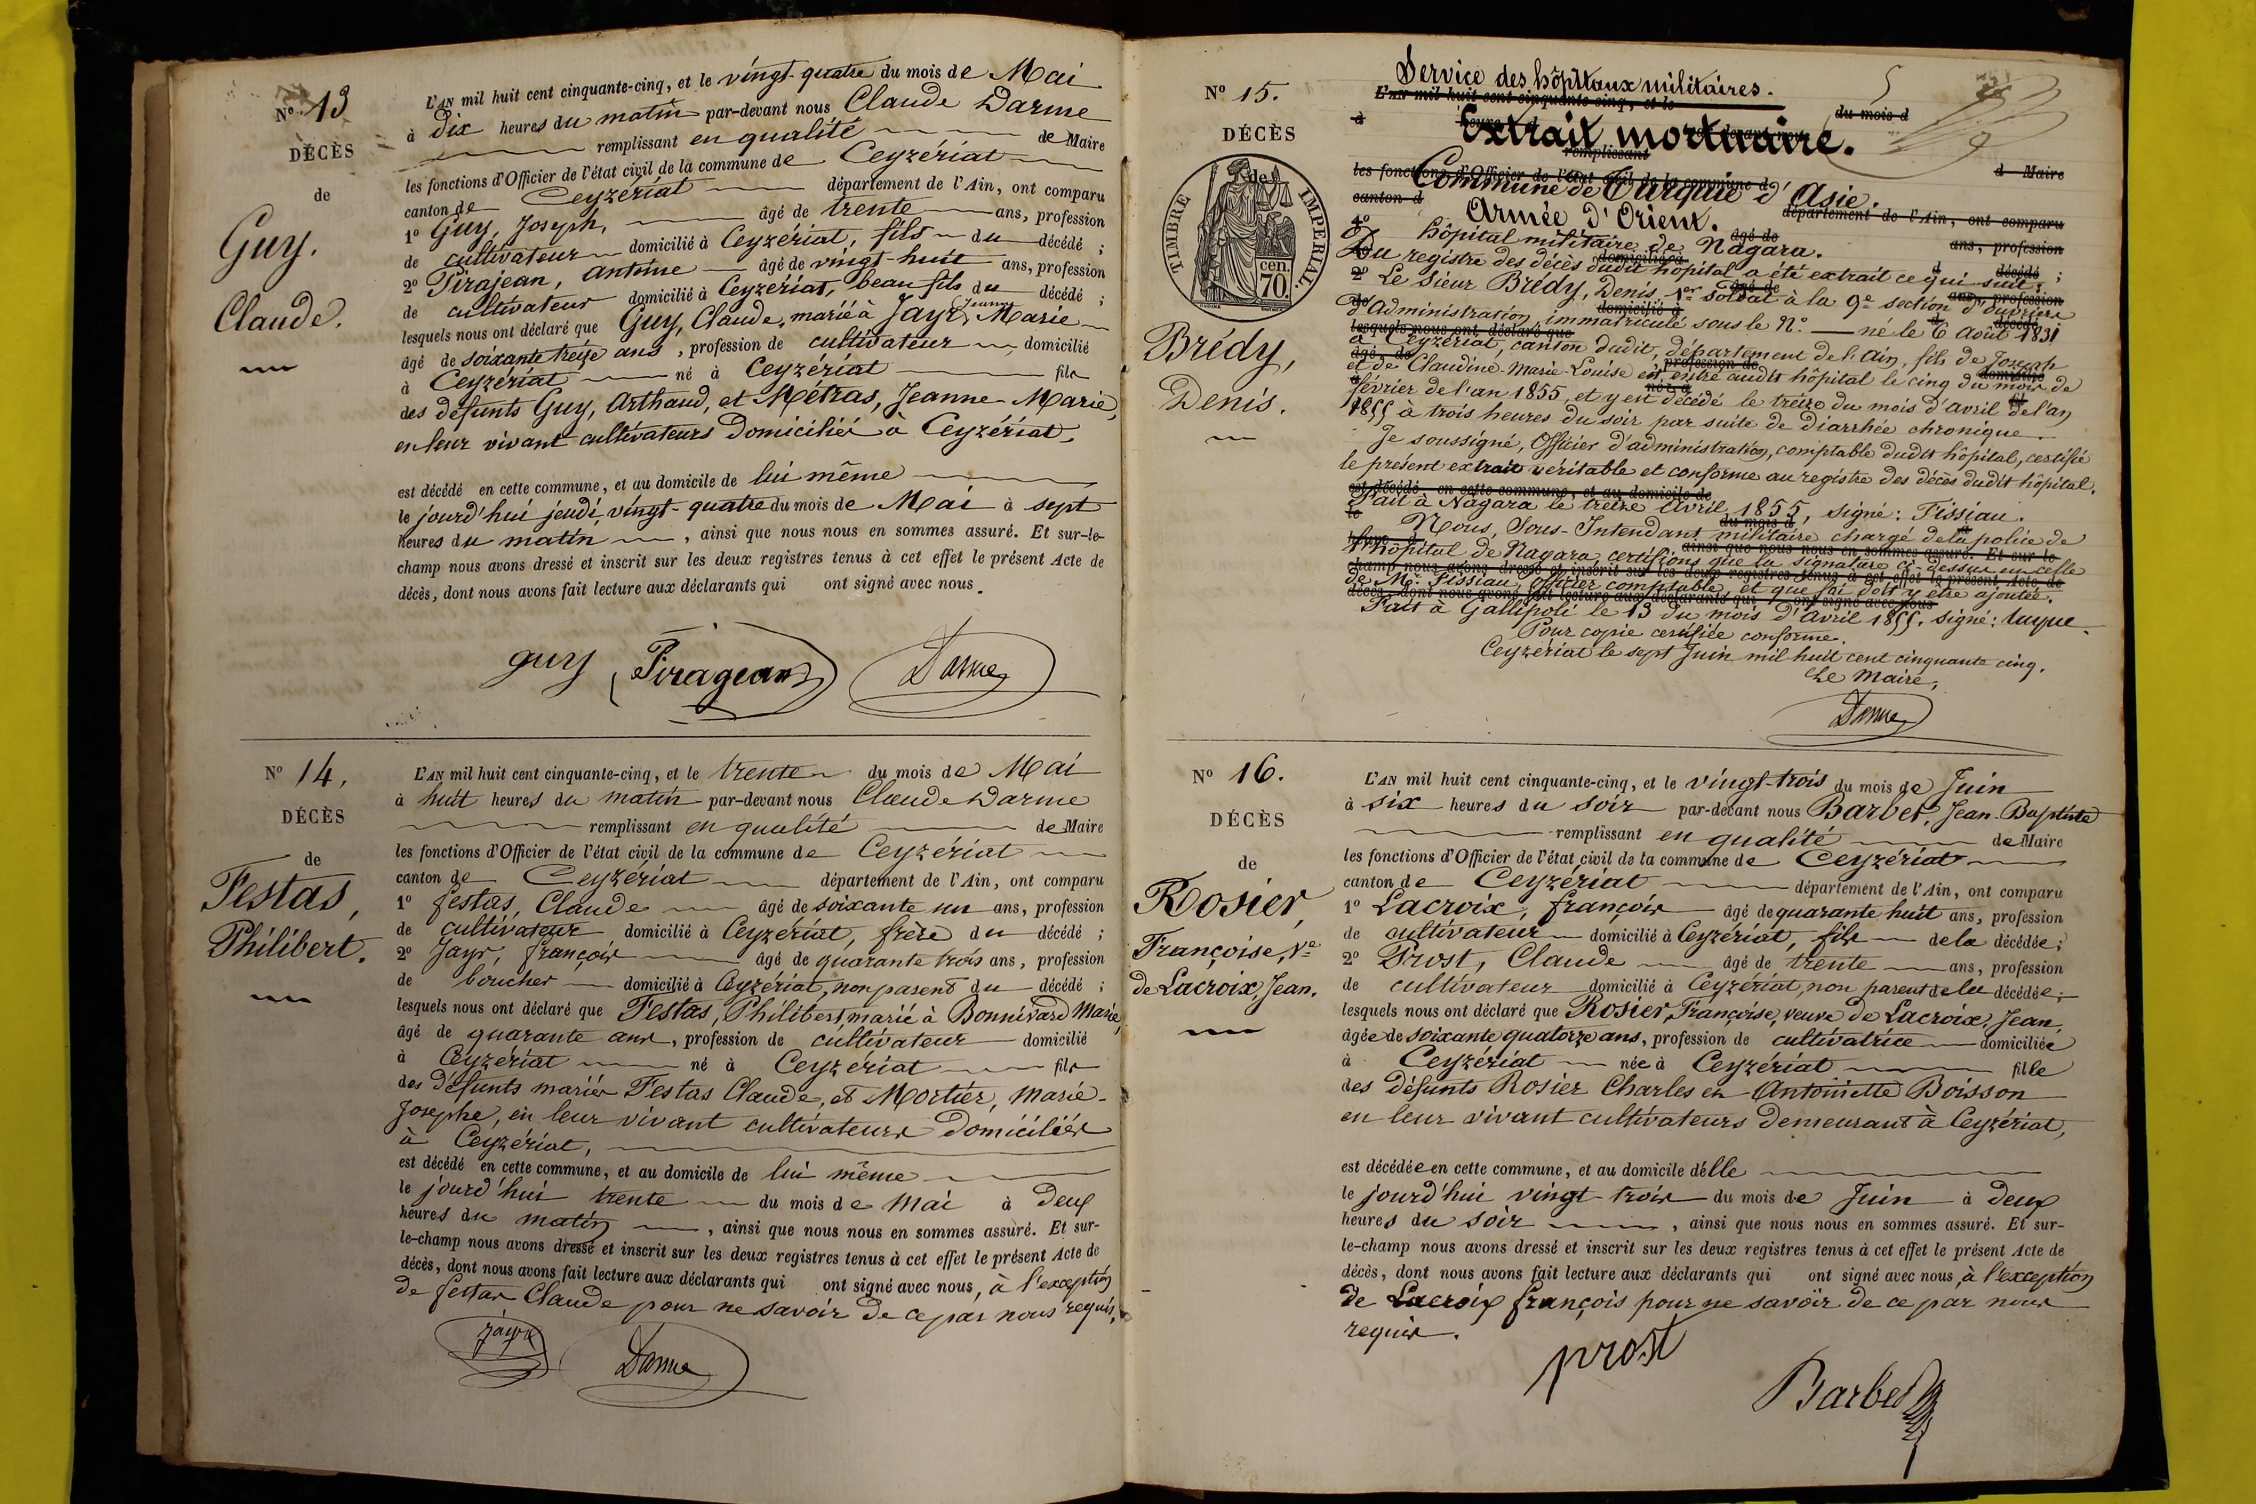 N° 13
DÉCÈS
de
Guy.
Claude.
L'AN mil huit cent cinquante-cinq, et le vingt-quatre du mois de Mai
à Dix heures du matin par-devant nous Claude Darme
remplissant en qualité de Maire
les fonctions d'Officier de l'état civil de la commune de Ceyzériat
canton de Ceyzériat département de l'Ain, ont comparu
1° Guy, Joseph, âgé de trente ans, profession
de cultivateur domicilié à Ceyzériat, fils du décédé ;
2° Pirajean, Antoine âgé de vingt-huit ans, profession
de cultivateur domicilié à Ceyzériat, beau fils du décédé ;
lesquels nous ont déclaré que Guy, Claude, marié à Jayr, Jeanne Marie
âgé de soixante treize ans, profession de cultivateur domicilié
à Ceyzériat né à Ceyzériat fils
des défunts Guy, Arthaud, et Métras, Jeanne-Marie,
en leur vivant cultivateurs domiciliés à Ceyzériat,
est décédé en cette commune, et au domicile de lui même
le jourd'hui jeudi, vingt-quatre du mois de Mai à sept
heures du matin, ainsi que nous nous en sommes assuré. Et sur-le-
champ nous avons dressé et inscrit sur les deux registres tenus à cet effet le présent Acte de
décès, dont nous avons fait lecture aux déclarants qui ont signé avec nous.
guy Piragean Darme
N° 14.
DÉCÈS
de
Festas,
Philibert.
L'AN mil huit cent cinquante-cinq, et le trente du mois de Mai
à huit heures du matin par-devant nous Claude Darme
remplissant en qualité de Maire
les fonctions d'Officier de l'état civil de la commune de Ceyzériat
canton de Ceyzériat département de l'Ain, ont comparu
1° festas, Claude âgé de soixante un ans, profession
de cultivateur domicilié à Ceyzériat, frère du décédé ;
2° Jayr, françois âgé de quarante trois ans, profession
de boucher domicilié à Ceyzériat, non parent du décédé ;
lesquels nous ont déclaré que Festas, Philibert, marié à Bonnevard Marie,
âgé de quarante ans, profession de cultivateur domicilié
à Ceyzériat né à Ceyzériat fils
des défunts mariés Festas Claude, et Mortier, Marie-
Josephe, en leur vivant cultivateurs domiciliés
à Ceyzériat,
est décédé en cette commune, et au domicile de lui même
le jourd'hui trente du mois de Mai à deux
heures du matin, ainsi que nous nous en sommes assuré. Et sur-
le-champ nous avons dressé et inscrit sur les deux registres tenus à cet effet le présent Acte de
décès, dont nous avons fait lecture aux déclarants qui ont signé avec nous, à l'exception
de festas Claude pour ne savoir de ce par nous requis.
jayr Darme
N° 15.
DÉCÈS
de
TIMBRE IMPÉRIAL.
70 cen.
Brédy,
Denis.
5
Service des hôpitaux militaires.
L'AN mil huit cent cinquante-cinq, et le du mois d
Extrait mortuaire.
remplissant d Maire
les fonctions d'Officier de l'état civil de la commune d
Commune de Turquie d'Asie.
canton d département de l'Ain, ont comparu
Armée d'Orient.
1° âgé de ans, profession
hôpital militaire de Nagara.
domicilié à décédé ;
Du registre des décès dudit hôpital a été extrait ce qui suit:
2° âgé de ans, profession
Le Sieur Brédy, Denis, 1er soldat à la 9e section d'ouvriers
domicilié à décédé
d'Administration, immatriculé sous le N° — né le 6 Août 1831
lesquels nous ont déclaré que
à Ceyzériat, canton dudit, département de l'Ain, fils de Joseph
âgé de profession de domicilié
et de Claudine-Marie-Louise est entré audit hôpital le cinq du mois de
né à
février de l'an 1855, et y est décédé le treize du mois d'avril de l'an
1855 à trois heures du soir par suite de diarrhée chronique.
Je soussigné, Officier d'administration, comptable dudit hôpital, certifie
le présent extrait veritable et conforme au registre des décès dudit hôpital.
est décédé en cette commune, et au domicile de
Fait à Nagara le treize Avril 1855, signé: Fissiau.
du mois d
Nous, Sous-Intendant militaire chargé de la police de
ainsi que nous nous en sommes assuré. Et sur-le-
l'hôpital de Nagara, certifions que la signature ci-dessus est celle
champ nous avons dressé et inscrit sur les deux registres tenus à cet effet le présent Acte de
de Mr. Fissiau, officier comptable, et que foi doit y être ajoutée.
décès, dont nous avons fait lecture aux déclarants qui ont signé avec nous
Fait à Gallipoli le 13 du mois d'Avril 1855. signé:
Pour copie certifiée conforme.
Ceyzériat le sept Juin mil huit cent cinquante cinq.
Le Maire,
Darme
N° 16.
DÉCÈS
de
Rosier,
Françoise, Ve
de Lacroix, Jean.
L'AN mil huit cent cinquante-cinq, et le vingt-trois du mois de Juin
à six heures du soir par-devant nous Barbet, Jean-Baptiste
remplissant en qualité de Maire
les fonctions d'Officier de l'état civil de la commune de Ceyzériat
canton de Ceyzériat département de l'Ain, ont comparu
1° Lacroix, françois âgé de quarante huit ans, profession
de cultivateur domicilié à Ceyzériat, fils de la décédée ;
2° Prost, Claude âgé de trente ans, profession
de cultivateur domicilié à Ceyzériat, non parent de la décédée ;
lesquels nous ont déclaré que Rosier, Françoise, veuve de Lacroix, Jean,
âgée de soixante quatorze ans, profession de cultivatrice domiciliée
à Ceyzériat née à Ceyzériat fille
des défunts Rosier Charles et Antoinette Boisson
en leur vivant cultivateurs demeurant à Ceyzériat,
est décédée en cette commune, et au domicile d'elle
le jourd'hui vingt-trois du mois de Juin à deux
heures du soir, ainsi que nous nous en sommes assuré. Et sur-
le-champ nous avons dressé et inscrit sur les deux registres tenus à cet effet le présent Acte de
décès, dont nous avons fait lecture aux déclarants qui ont signé avec nous, à l'exception
de Lacroix françois pour ne savoir de ce par nous
requis.
prost
Barbet